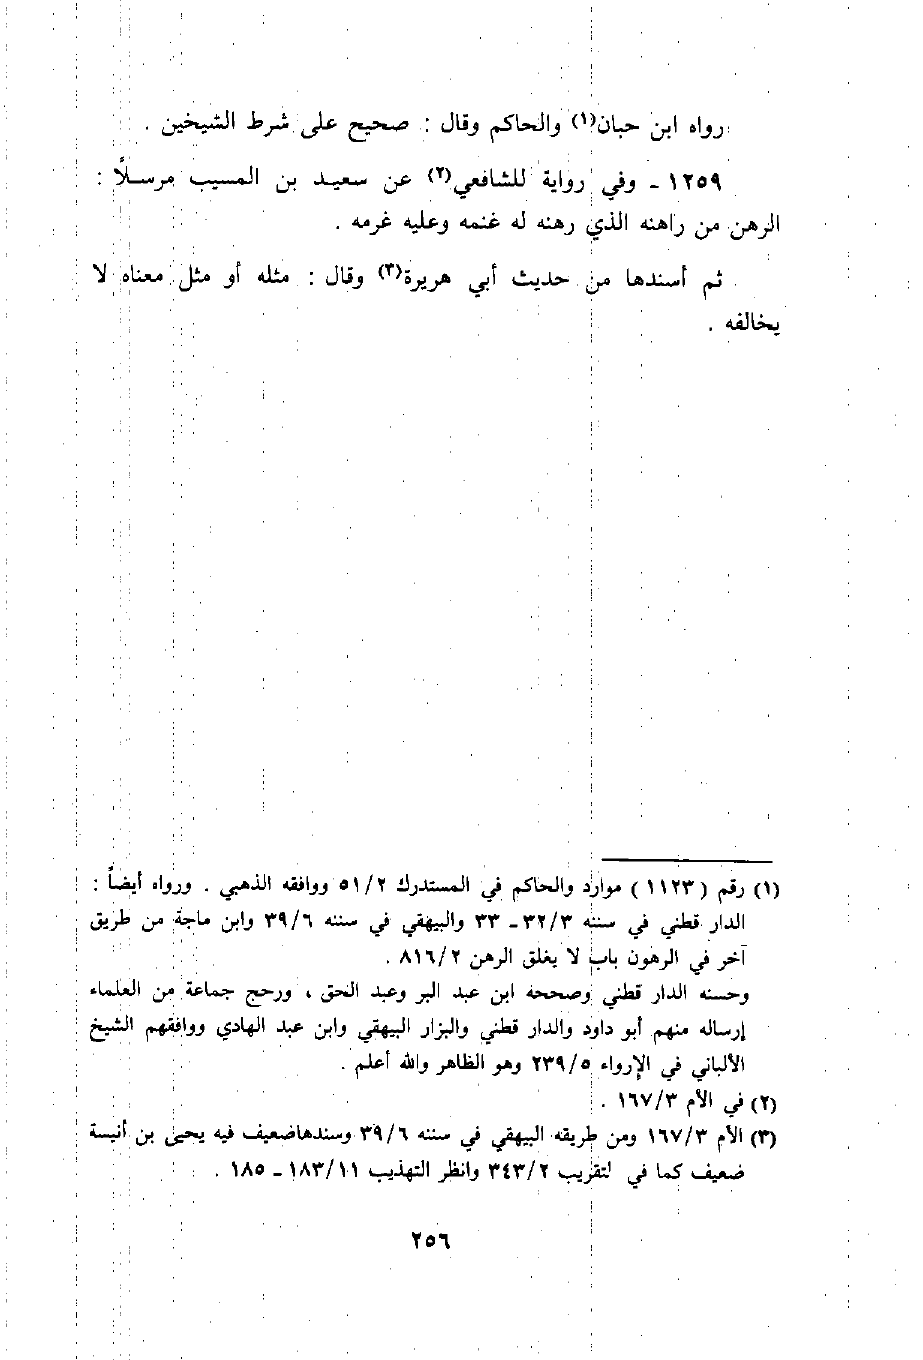 رواه ابن حبان(١) والحاكم وقال : صحيح على شرط الشيخين .
١٢٥٩ ـ وفي رواية للشافعي(٢) عن سعيد بن المسيب مرسلاً :
الرهن من راهنه الذي رهنه له غنمه وعليه غرمه .
ثم أسندها من حديث أبي هريرة(٣) وقال : مثله أو مثل معناه لا
يخالفه .
(١) رقم ( ١١٢٣ ) موارد والحاكم في المستدرك ٥١/٢ ووافقه الذهبي . ورواه أيضاً :
الدار قطني في سننه ٣٢/٣ ـ ٣٣ والبيهقي في سننه ٣٩/٦ وابن ماجة من طريق
آخر في الرهون باب لا يغلق الرهن ٨١٦/٢ .
وحسنه الدار قطني وصححه ابن عبد البر وعبد الحق ، ورجح جماعة من العلماء
إرساله منهم أبو داود والدار قطني والبزار البيهقي وابن عبد الهادي ووافقهم الشيخ
الألباني في الإرواء ٢٣٩/٥ وهو الظاهر والله أعلم .
(٢) في الأم ١٦٧/٣ .
(٣) الأم ١٦٧/٣ ومن طريقه البيهقي في سننه ٣٩/٦ وسندهاضعيف فيه يحيى بن أنيسة
ضعيف كما في لتقريب ٣٤٣/٢ وانظر التهذيب ١٨٣/١١ ـ ١٨٥ .
٢٥٦